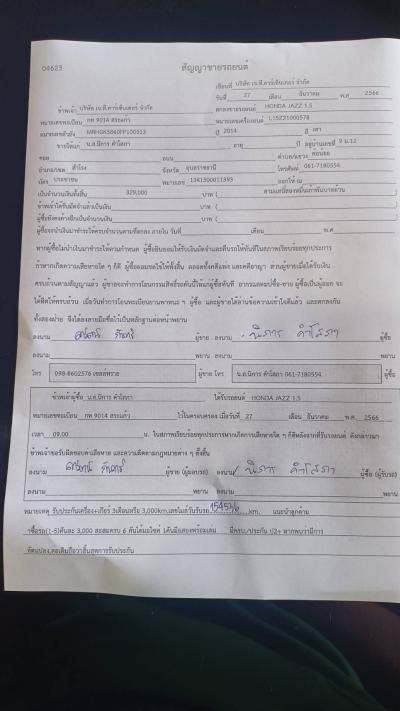 04623
สัญญาขายรถยนต์
เขียนที่ บริษัท เจ.ที.คาร์เซ็นเตอร์ จำกัด
วันที่ 27 เดือน ธันวาคม พ.ศ 2566
ข้าพเจ้า บริษัท เจ.ที.คาร์เซ็นเตอร์ จำกัด ตกลงขายรถยนต์ HONDA JAZZ 1.5
หมายเลขทะเบียน กท 9014 สระแก้ว หมายเลขเครื่องยนต์ L15Z21000578
หมายเลขตัวถัง MRHGK5860FP100313 ปี 2014 สี เทา
ขายให้แก่ น.ส.นิการ คำโสภา อายุ ปี อยู่บ้านเลขที่ 9 ม.12
ซอย ถนน ตำบล/แขวง ค้อน้อย
อำเภอ/เขต สำโรง จังหวัด อุบลราชธานี โทรศัพท์ 061-7180554
บัตร ประชาชน หมายเลข 1341500011393 ออกให้ ณ
เป็นจำนวนเงินทั้งสิ้น 329,000 บาท ( สามแสนสองหมื่นเก้าพันบาทถ้วน
ข้าพเจ้าได้รับมัดจำแล้วเป็นเงิน บาท (
ผู้ซื้อยังคงค้างอีกเป็นจำนวนเงิน บาท (
ผู้ซื้อจะนำเงินมาชำระให้ครบจำนวนตามที่ตกลง ภายใน วันที่ เดือน พ.ศ
หากผู้ซื้อไม่นำเงินมาชำระให้ตามกำหนด ผู้ซื้อยินยอมให้ริบเงินมัดจำและคืนรถให้ทันทีในสภาพเรียบร้อยทุกประการ
ถ้าหากเกิดความเสียหายใด ๆ ก็ดี ผู้ซื้อยอมชดใช้ให้ทั้งสิ้น ตลอดทั้งคดีแพ่ง และคดีอาญา ส่วนผู้ขายเมื่อได้รับเงิน
ครบถ้วนตามสัญญาแล้ว ผู้ขายจะทำการโอนกรรมสิทธิ์รถคันนี้ให้แก่ผู้ซื้อทันที อากรแสตมป์ซื้อ-ขาย ผู้ซื้อเป็นผู้ออก จะ
ได้คิดให้ครบถ้วน เมื่อวันทำการโอนทะเบียนยานพาหนะ ฯ ผู้ซื้อ และผู้ขายได้อ่านข้อความเข้าใจดีแล้ว และตกลงกัน
ทั้งสองฝ่าย จึงได้ลงลายมือชื่อไว้เป็นหลักฐานต่อหน้าพยาน
ลงนาม ผู้ขาย ลงนาม นิการ คำโสภา ผู้ซื้อ
ลงนาม พยาน ลงนาม พยาน
โทร 098-8602576 เซลล์ทราย ผู้ขาย โทร น.ส.นิการ คำโสภา 061-7180554 ผู้ซื้อ
ข้าพเจ้าผู้ซื้อ น.ส.นิการ คำโสภา ได้รับรถยนต์ HONDA JAZZ 1.5
หมายเลขทะเบียน กท 9014 สระแก้ว ไว้ในครอบครอง เมื่อวันที่ 27 เดือน ธันวาคม พ.ศ. 2566
เวลา 09.00 น. ในสภาพเรียบร้อยทุกประการหากเกิดการเสียหายใด ๆ ก็ดีหลังจากที่รับรถยนต์ ดังกล่าวมา
ข้าพเจ้าขอรับผิดชอบค่าเสียหาย และความผิดตามกฎหมายต่าง ๆ ทั้งสิ้น
ลงนาม ผู้ขาย (ผู้มอบรถ) ลงนาม นิการ คำโสภา ผู้ซื้อ (ผู้รับรถ)
ลงนาม พยาน ลงนาม พยาน
หมายเหตุ รับประกันเครื่อง+เกียร์ 3เดือนหรือ 3,000km.เลขไมล์วันรับรถ km. แนะนำลูกค้ามา
ซื้อรถ(1-5)คันละ 3,000 สะสมครบ 6 คันได้มอไซค์ 1คันมือสองพร้อมเล่ม มีพรบ./ประกัน ป2+ หากพบว่ามีการ
ดัดแปลง,ต่อเติมถือว่าสิ้นสุดการรับประกัน